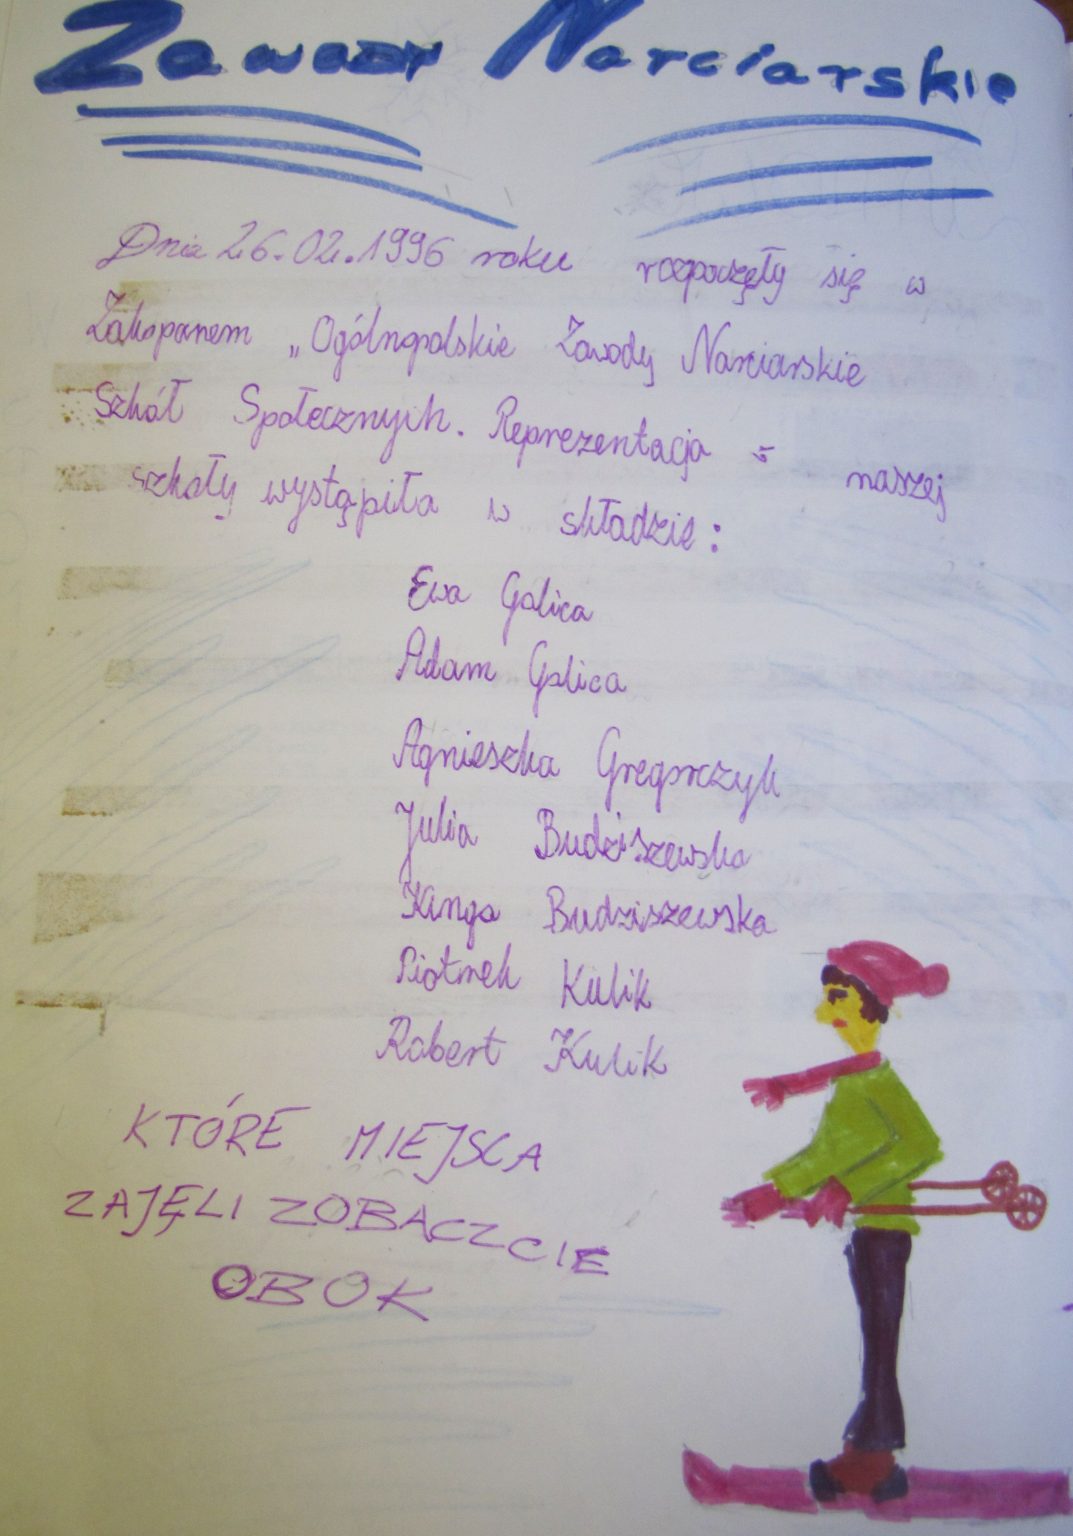 Zawody Narciarskie
Dnia 26.02.1996 roku rozpoczęły się w
Zakopanem „Ogólnopolskie Zawody Narciarskie
Szkół Społecznych. Reprezentacja - naszej
szkoły wystąpiła w składzie:
Ewa Galica
Adam Galica
Agnieszka Gregorczyk
Julia Budziszewska
Kinga Budziszewska
Piotrek Kulik
Robert Kulik
KTÓRE MIEJSCA
ZAJĘLI ZOBACZCIE
OBOK